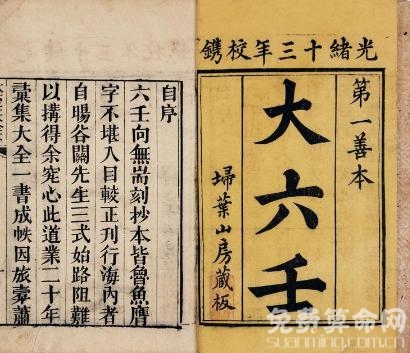 光緒十三年校鐫
第一善本
大六壬
埽葉山房藏板
自序
六壬向無耑刻抄本皆魯魚
字不堪入目較正刊行海內者
自暘谷關先生三式始路阻難
以搆得余心此道業二十年
彚集大全一書成帙因旅橐蕭
免费算命网